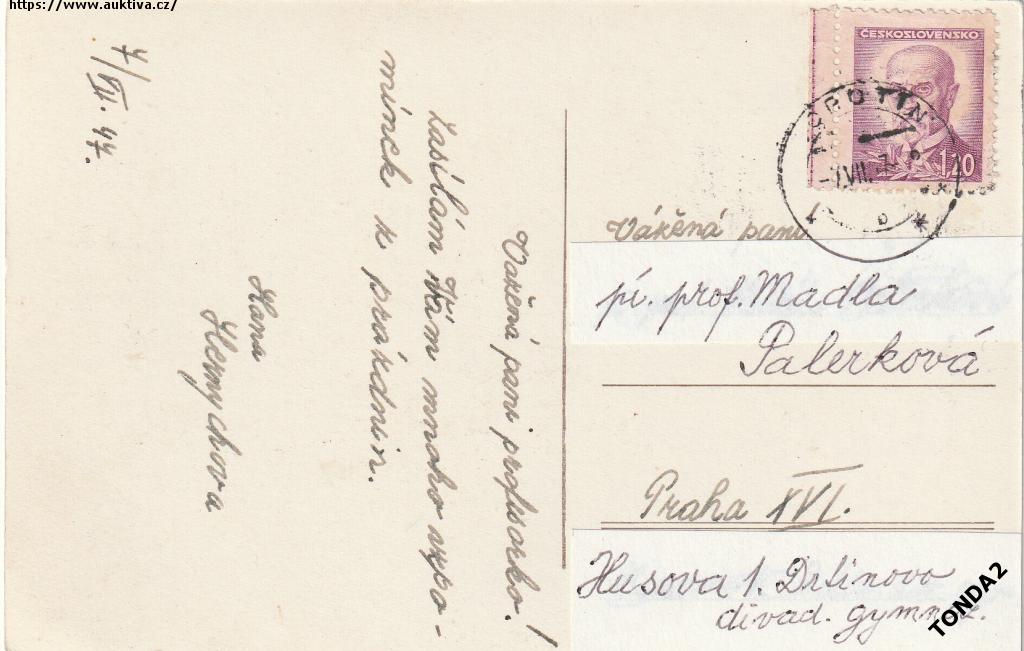 https://www.auktiva.cz/
4/VII. 47.
Vážená paní profesorko!
Zasílám Vám mnoho vzpo-
mínek k prázdnin.
Hana
Hennychova
ČESKOSLOVENSKO
1,20
Vážená paní
pí. prof. Madla
Palerková
Praha XVI.
Husova 1. Drtinovo
divad. gymn
TONDA2